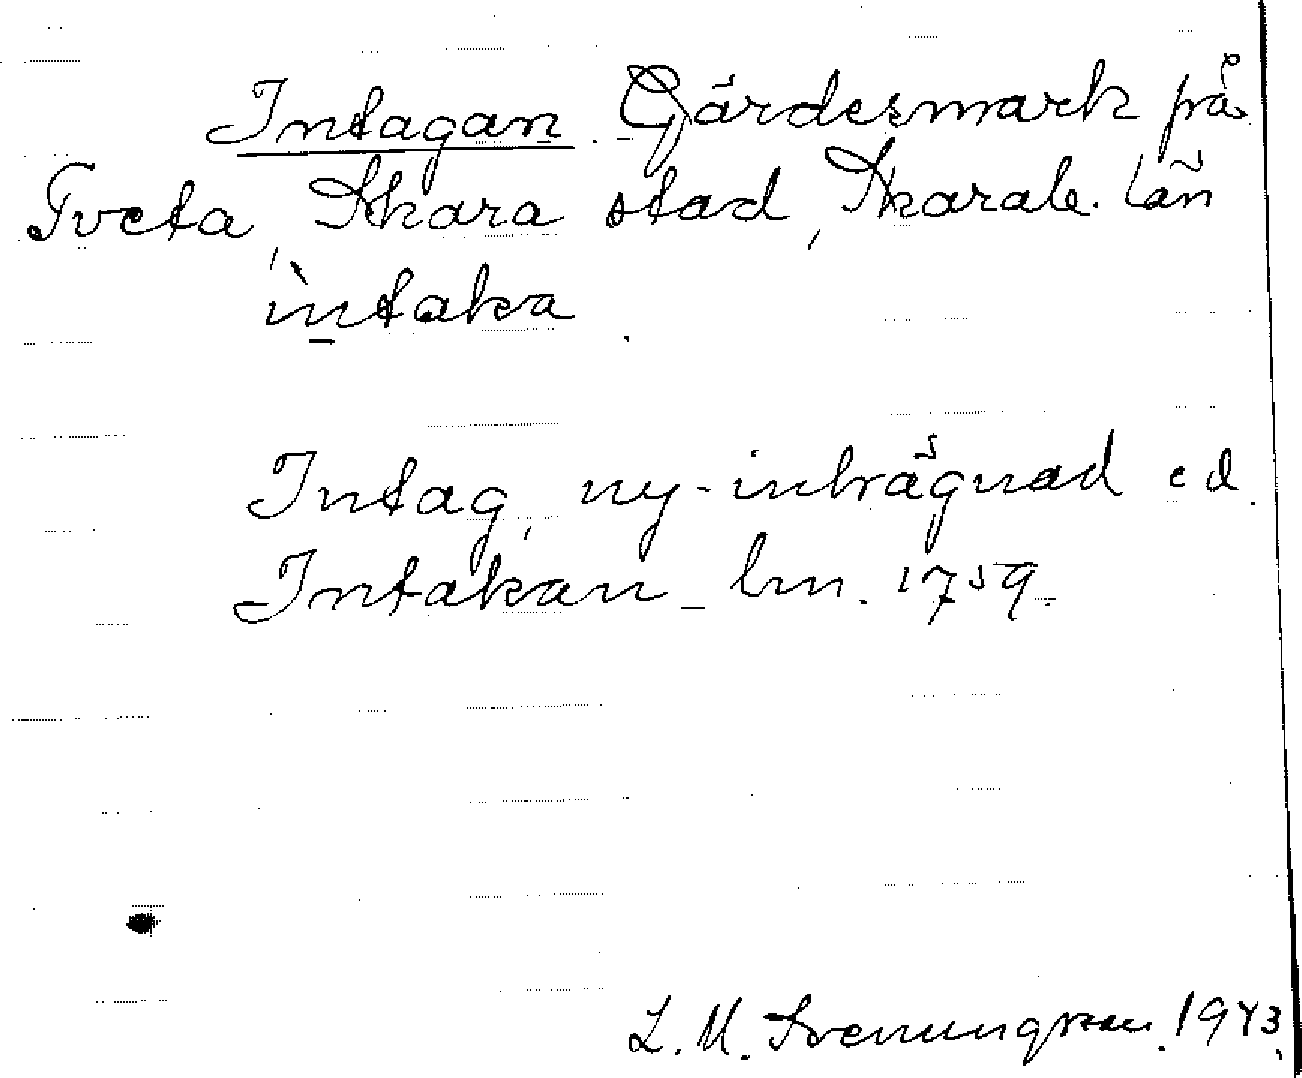 Intagan. Gärdesmark på
Tveta, Skara stad, Skarab. län
ìntaka.
Intag, ny-inhägnad ed.
Intakan - lm. 1759.
L. M. Svenungsson. 1943.